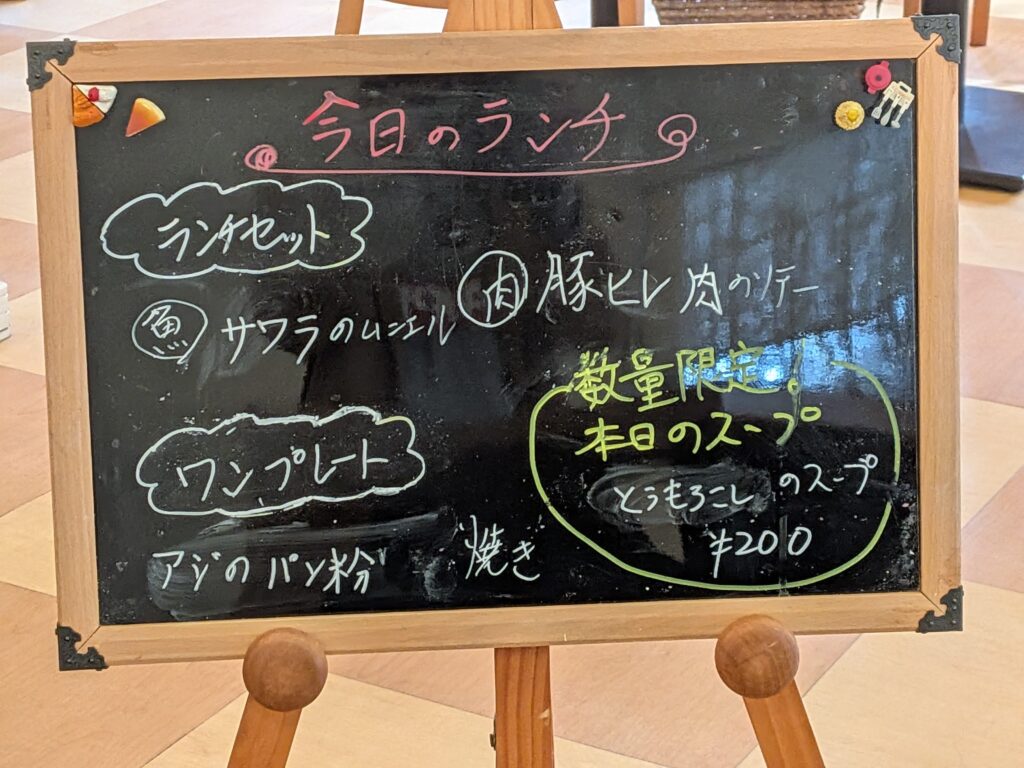 今日のランチ
ランチセット
魚 サワラのムニエル
肉 豚ヒレ肉のソテー
数量限定!
本日のスープ
とうもろこしのスープ
¥200
ワンプレート
アジのパン粉焼き